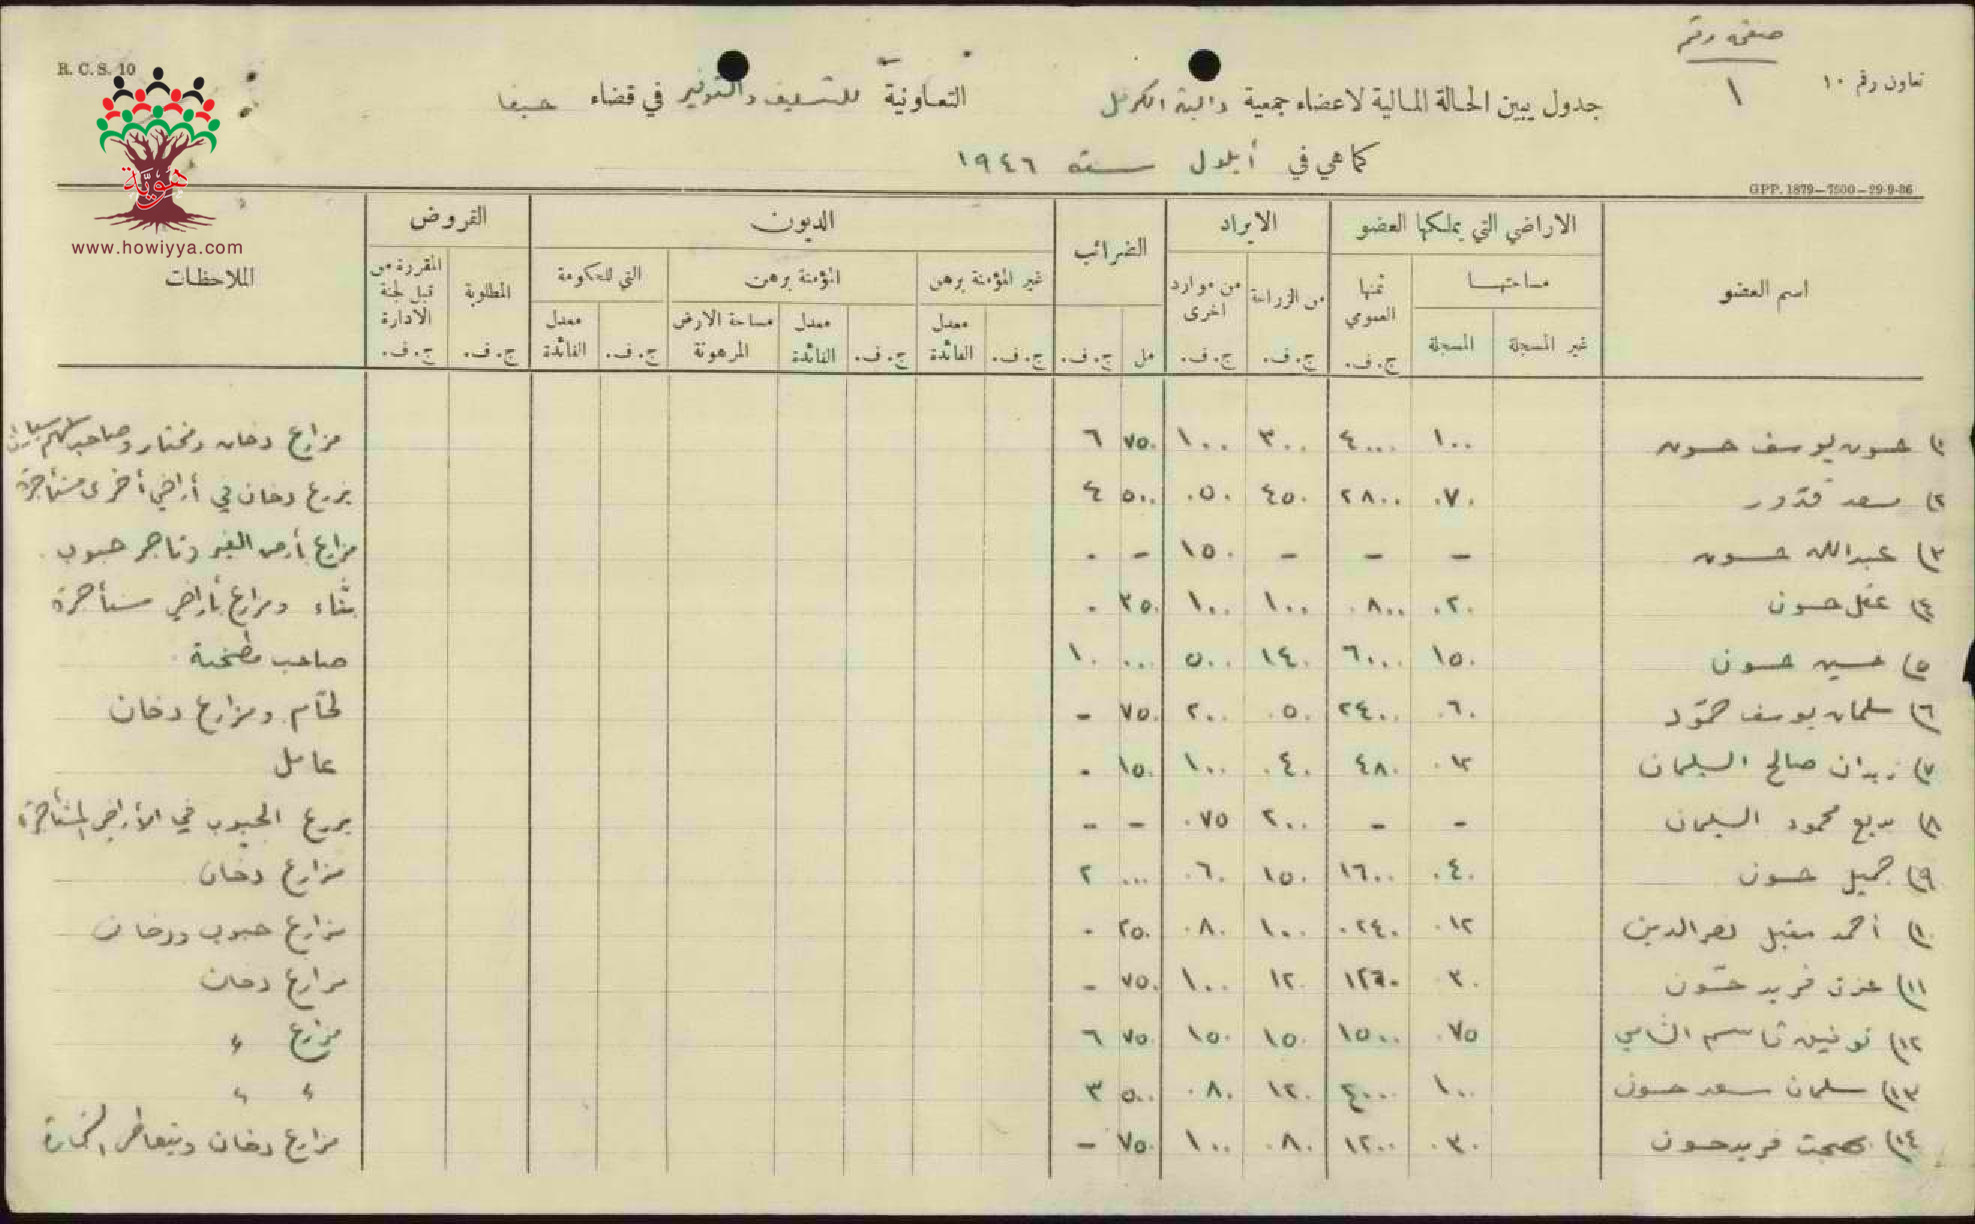 صفحه رقم
١
تعاون رقم ١٠
R. C. S. 10
جدول يبين الحالة المالية لاعضاء جمعية دالية الكرمل التعاونية للتسليف والتوفير في قضاء حيفا
كما هي في أيلول سنة ١٩٤٦
GPP. 1879—7500—29-9-36
هوية
www.howiyya.com
اسم العضو الاراضي التي يملكها العضو الايراد الضرائب الديون القروض الملاحظات
مساحتها ثمنها العمومي من الزراعة من موارد اخرى غير المؤمنة برهن المؤمنة برهن التي للحكومة المطلوبة المقررة من قبل لجنة الادارة
غير المسجلة المسجلة ج.ف. ج.ف. ج.ف. مل ج.ف. ج.ف. معدل الفائدة ج.ف. معدل الفائدة مساحة الارض المرهونة ج.ف. معدل الفائدة ج.ف. ج.ف.
١) حسون يوسف حسون ١٠٠ ٤٠٠٠ ٣٠٠ ١٠٠ ٧٥٠ ٦ مزارع دخان ومختار وصاحب
٢) سعد قدور ٠٧٠ ٢٨٠٠ ٤٥٠ ٠٥٠ ٥٠٠ ٤ يزرع دخان في أراضي أخرى مستأجرة
٣) عبدالله حسون - - - ١٥٠ - - مزارع بأرض الغير وتاجر حبوب
٤) عقل حسون ٠٢٠ ٠٨٠٠ ١٠٠ ١٠٠ ٣٥٠ ٠ بناء ومزارع بأراضي مستأجرة
٥) حسين حسون ١٥٠ ٦٠٠٠ ١٤٠ ٥٠٠ ٠٠٠ ١٠ صاحب مطحنة
٦) سلمان يوسف حمود ٠٦٠ ٢٤٠٠ ٠٥٠ ٢٠٠ ٧٥٠ - لحام ومزارع دخان
٧) زيدان صالح السليمان ٠١٢ ٤٨٠ ٠٤٠ ١٠٠ ١٥٠ ٠ عامل
٨) محمود السليمان - - ٢٠٠ ٠٧٥ - - يزرع الحبوب في الأراضي المستأجرة
٩) جميل حسون ٠٤٠ ١٦٠٠ ١٥٠ ٠٦٠ ٠٠٠ ٢ مزارع دخان
١٠) أحمد مقبل نصرالدين ٠١٢ ٠٢٤٠ ١٠٠ ٠٨٠ ٢٥٠ ٠ مزارع حبوب ودخان
١١) فريد حسون ٠٣٠ ١٢٠ ١٠٠ ٧٥٠ - مزارع دخان
١٢) توفيق قاسم الشامي ٠٧٥ ١٥٠٠ ١٥٠ ١٥٠ ٧٥٠ ٦ مزارع "
١٣) سلمان سعد حسون ١٠٠ ٤٠٠٠ ١٢٠ ٠٨٠ ٥٠٠ ٣ " "
١٤) بهجت فريد حسون ٠٣٠ ١٢٠٠ ٠٨٠ ١٠٠ ٧٥٠ - مزارع دخان ويتعاطى التجارة